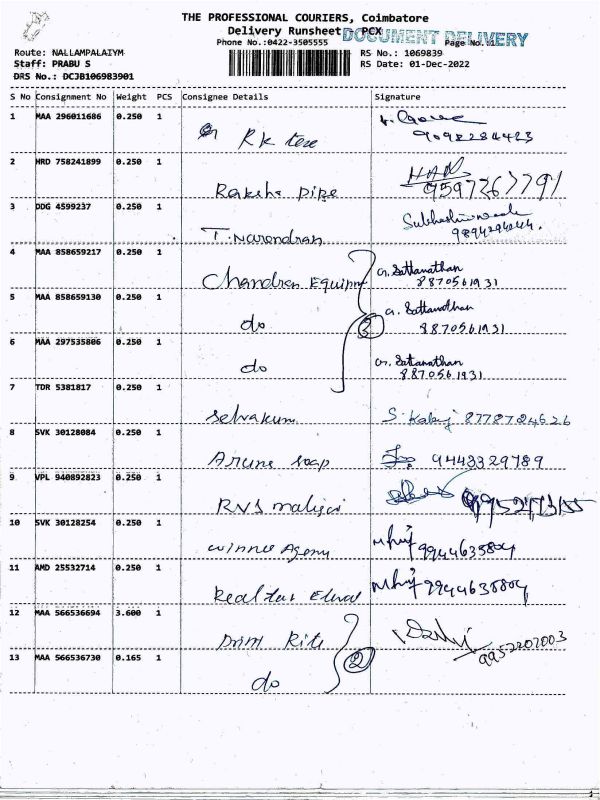 THE PROFESSIONAL COURIERS, Coimbatore
Delivery Runsheet - PCX
DOCUMENT DELIVERY
Phone No.:0422-3505555 Page No.:1
Route: NALLAMPALAIYM RS No.: 1069839
Staff: PRABU S RS Date: 01-Dec-2022
DRS No.: DCJB106983901
S No Consignment No Weight PCS Consignee Details Signature
1 MAA 296011686 0.250 1 RK tere
9098284423
2 HRD 758241899 0.250 1 Raksha pipe 9597267791
3 DDG 4599237 0.250 1 T. Narendran 9894294244.
4 MAA 858659217 0.250 1 Chandran Equipm Sattanathan
8870561931
5 MAA 858659130 0.250 1 do Sattanathan
8870561931
6 MAA 297535806 0.250 1 do Sattanathan
8870561931
3
7 TDR 5381817 0.250 1 Selvakum S. 8778724626
8 SVK 30128084 0.250 1 Arune soap 9443329789
9 VPL 940892823 0.250 1 RVS
10 SVK 30128254 0.250 1 winner Ageny 9944635804
11 AMD 25532714 0.250 1 9944635804
12 MAA 566536694 3.600 1 Prim Rite
9952202003
13 MAA 566536730 0.165 1 do
2